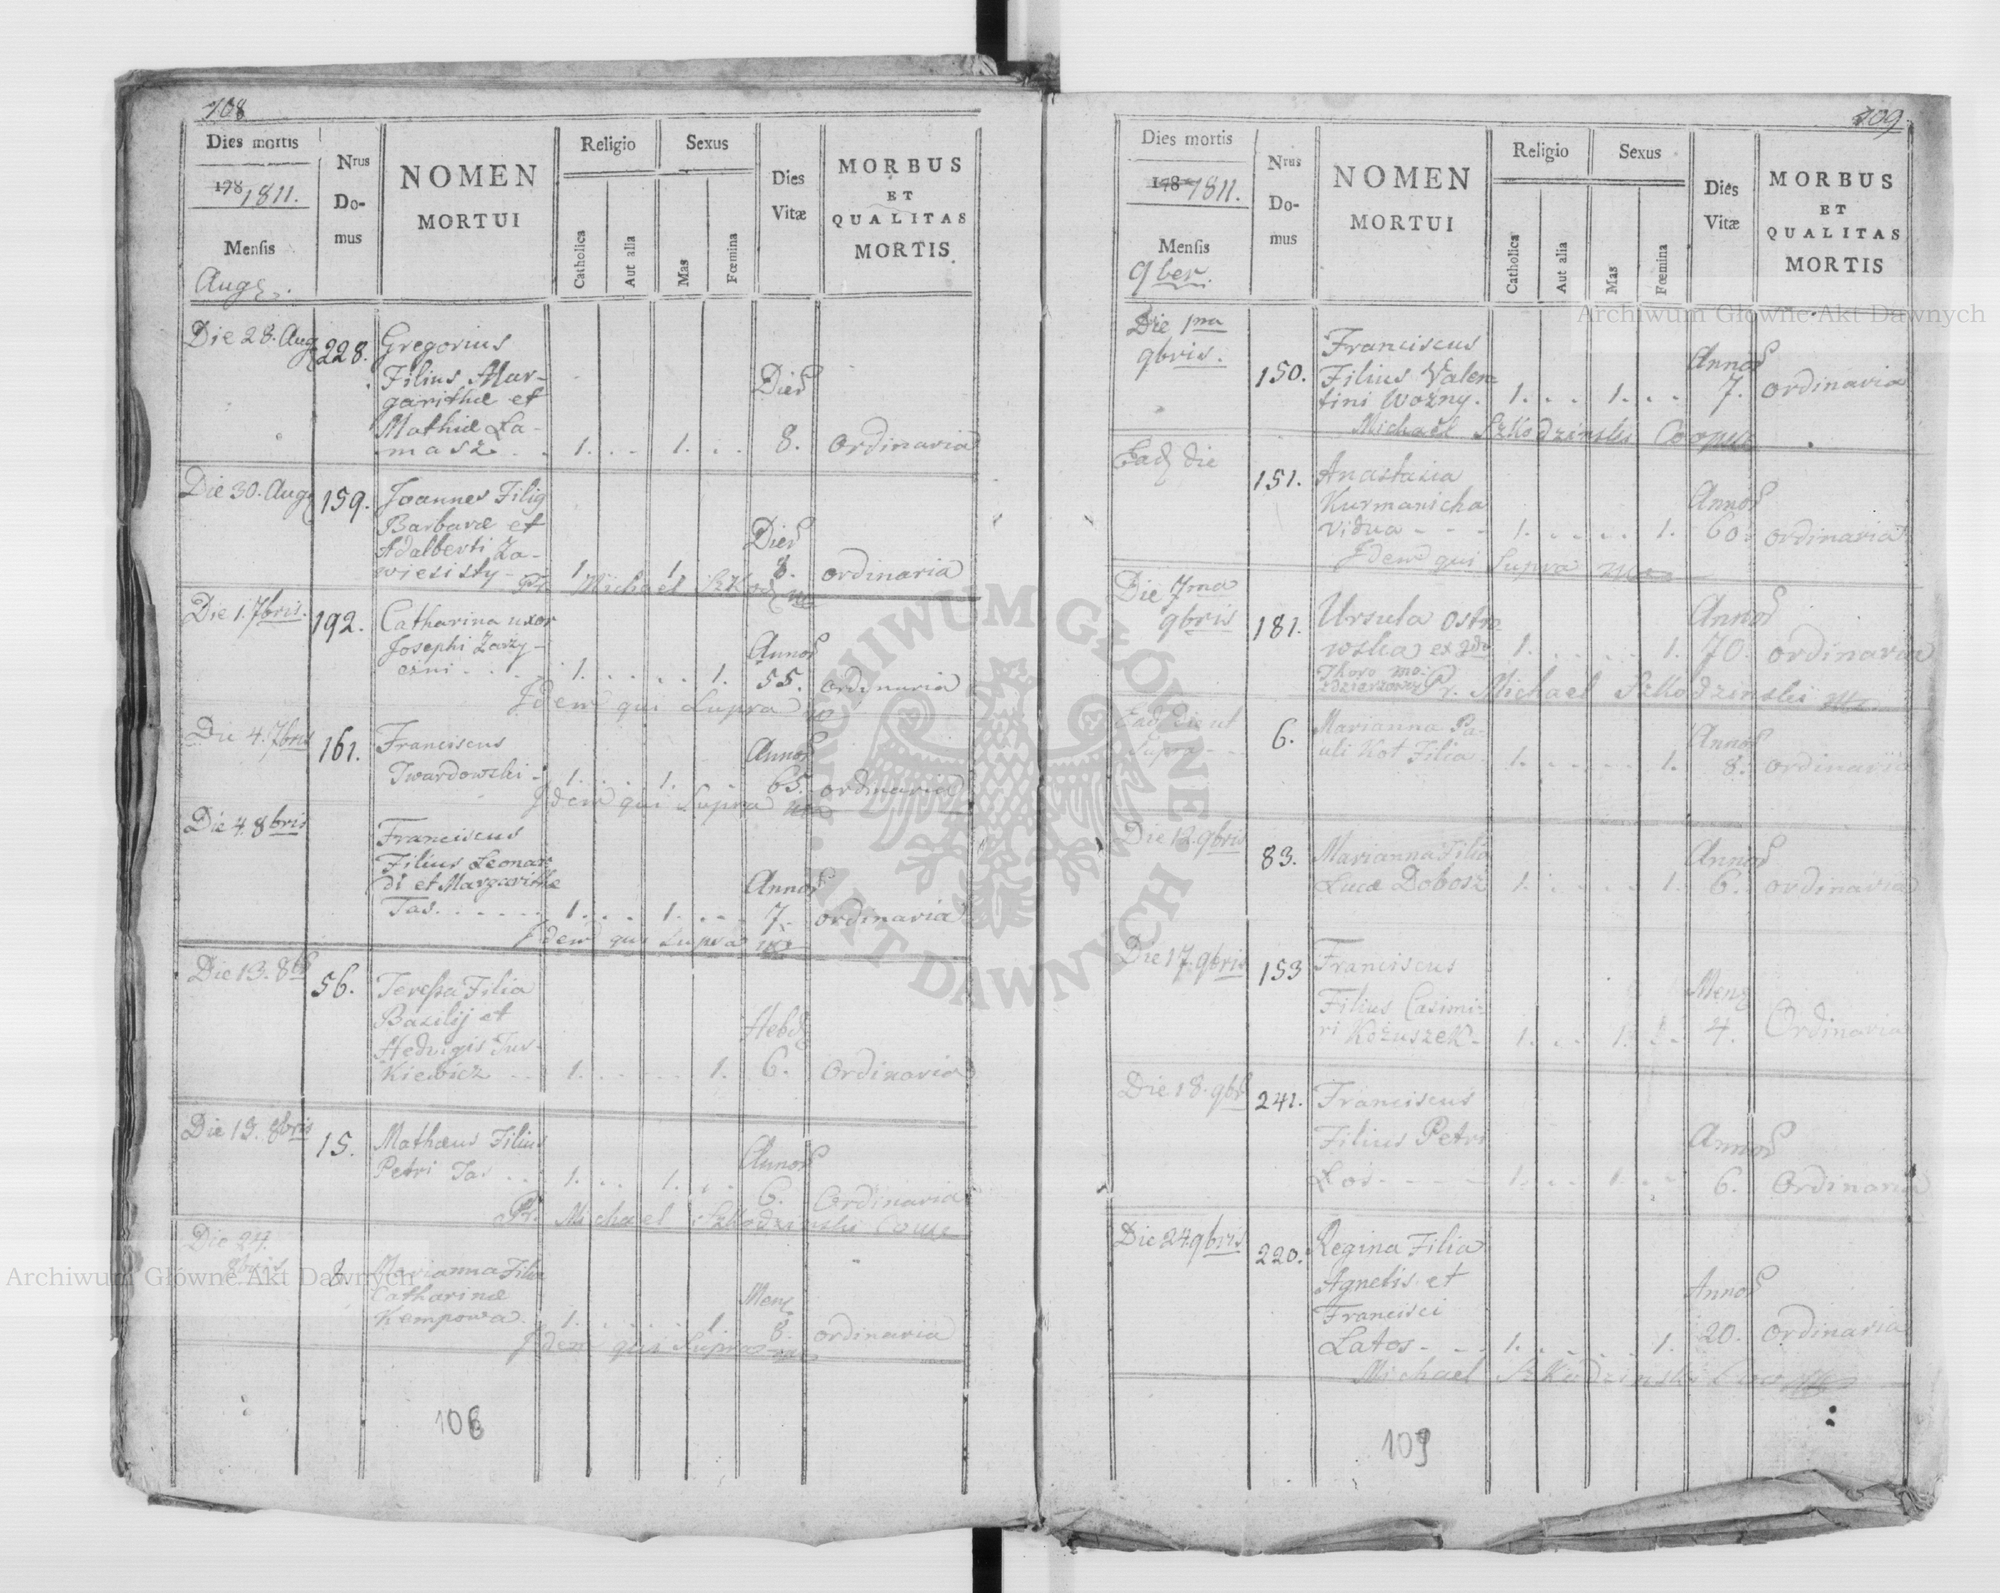 108
Dies mortis
178 1811.
Mensis
Aug.
Nrus
Do-
mus
NOMEN
MORTUI
Religio
Catholica
Aut alia
Sexus
Mas
Fœmina
Dies
Vitæ
MORBUS
ET
QUALITAS
MORTIS
Die 28. Aug 228. Gregorius
Filius Mar-
garithæ et
Mathiæ La-
masz . . 1. . . 1. . . Dier 8. ordinaria
Die 30. Aug 159. Joannes Filig
Barbaræ et
Adalberti Za-
wiesisty - 1. 1. Dier 8. ordinaria
Pr. Michael Szkod
Die 1. 7bris. 192. Catharina uxor
Josephi Zarzy-
czni . . . 1. . . . . 1. Annor 55. ordinaria
Jdem qui Supra
Die 4. 7bris 161. Franciscus
Twardowski - 1. . . 1. . . Annor 65. ordinaria
Jdem qui Supra
Die 4. 8bris Franciscus
Filius Leonar
di et Margarithæ
Tas. . . . . . 1. . . 1. . . . Annor 7. ordinaria
Jdem qui Supra
Die 13. 8br 56. Teressa Filia
Basilij et
Hedvigis Jus-
Kiewicz . . . 1. . . . . 1. Hebd 6. Ordinaria
Die 19. 8bris 15. Mathæus Filius
Petri Tas . . . 1. . . 1. . . Annor 6. Ordinaria
Pr. Michael Szkodzinski
Die 24.
8bris 8. Marianna Filia
Catharinæ
Kempowa. 1. . . . . 1. Mens 8. ordinaria
Jdem qui Supra
108
109
Dies mortis
178 1811.
Mensis
9ber.
Nrus
Do-
mus
NOMEN
MORTUI
Religio
Catholica
Aut alia
Sexus
Mas
Fœmina
Dies
Vitæ
MORBUS
ET
QUALITAS
MORTIS
Die 1ma
9bris. 150. Franciscus
Filius Valen-
tini Wozny. 1. . . 1. . . Annor 7. ordinaria
Michael Szkodzinski
Ead die 151. Anastasia
Kurmanicha
vidua - - - 1. . . . . 1. Annor 60. ordinaria
Jdem qui Supra
Die 7ma
9bris 181. Ursula Ostro
wska 1. . . . . 1. Annor 70. ordinaria
Pr. Michael Szkodzinski
Ead die ut
Supra - - 6. Marianna Pa-
uli Kot Filia 1. . . . . 1. Annor 8. ordinaria
Die 12. 9bris 83. Marianna Filia
Lucæ Dobosz 1. . . . . 1. Annor 6. ordinaria
Die 17. 9bris 153 Franciscus
Filius Casimi-
ri Kożuszek - 1. . . 1. . . Mens 4. Ordinaria
Die 18. 9br 241. Franciscus
Filius Petri
Łoś - - - - 1. . . 1. . . Annor 6. Ordinaria
Die 24. 9bris 220. Regina Filia
Agnetis et
Francisci
Latos - . . 1. . . . . 1. Annor 20. Ordinaria
Michael Szkodzinski
109
Archiwum Główne Akt Dawnych
Archiwum Główne Akt Dawnych
ARCHIWUM GŁÓWNE AKT DAWNYCH